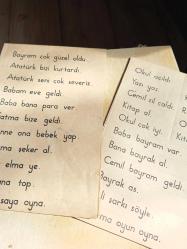 Bayram çok güzel oldu.
Atatürk bizi kurtardı.
Atatürk seni çok severiz.
Babam eve geldi.
Baba bana para ver
Fatma bize geldi.
nne ona bebek yap.
ma şeker al.
elma ye.
na top.
saya oyna.
Okul açıldı
Yazı yaz.
Cemil zil çaldı
Kitap al.
Okul çok iyi.
Baba bayram var
Bana bayrak al.
Cemil bayram geldi
Bayrak as.
li şarkı söyle.
ma oyun oyna.